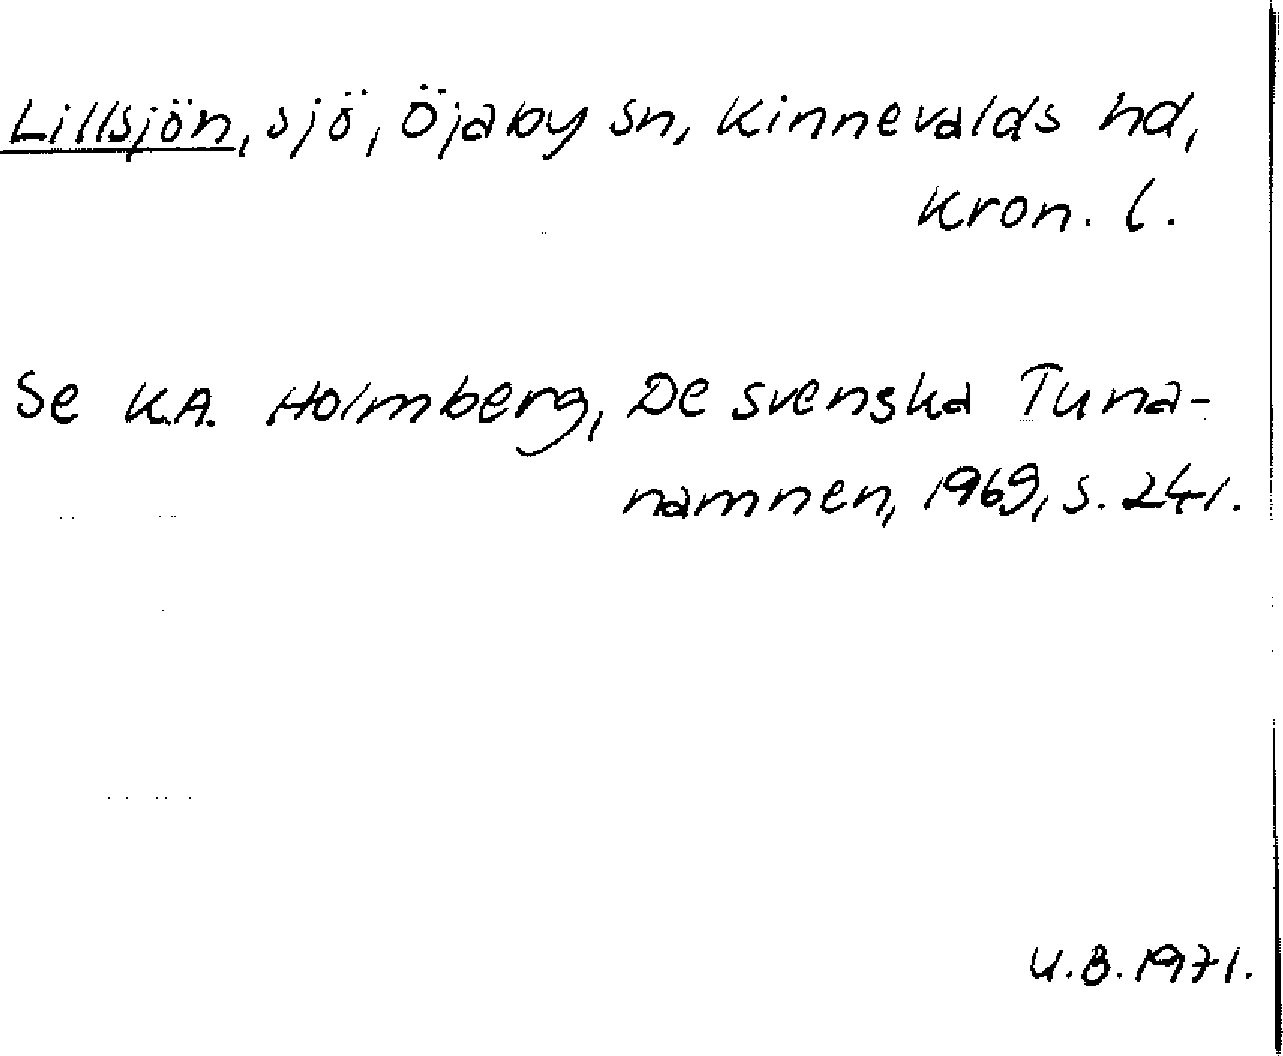 Lillsjön, sjö, Öjaby sn, Kinnevalds hd,
Kron. l.
Se K.A. Holmberg, De svenska Tuna-
namnen, 1969, s. 241.
U.B. 1971.